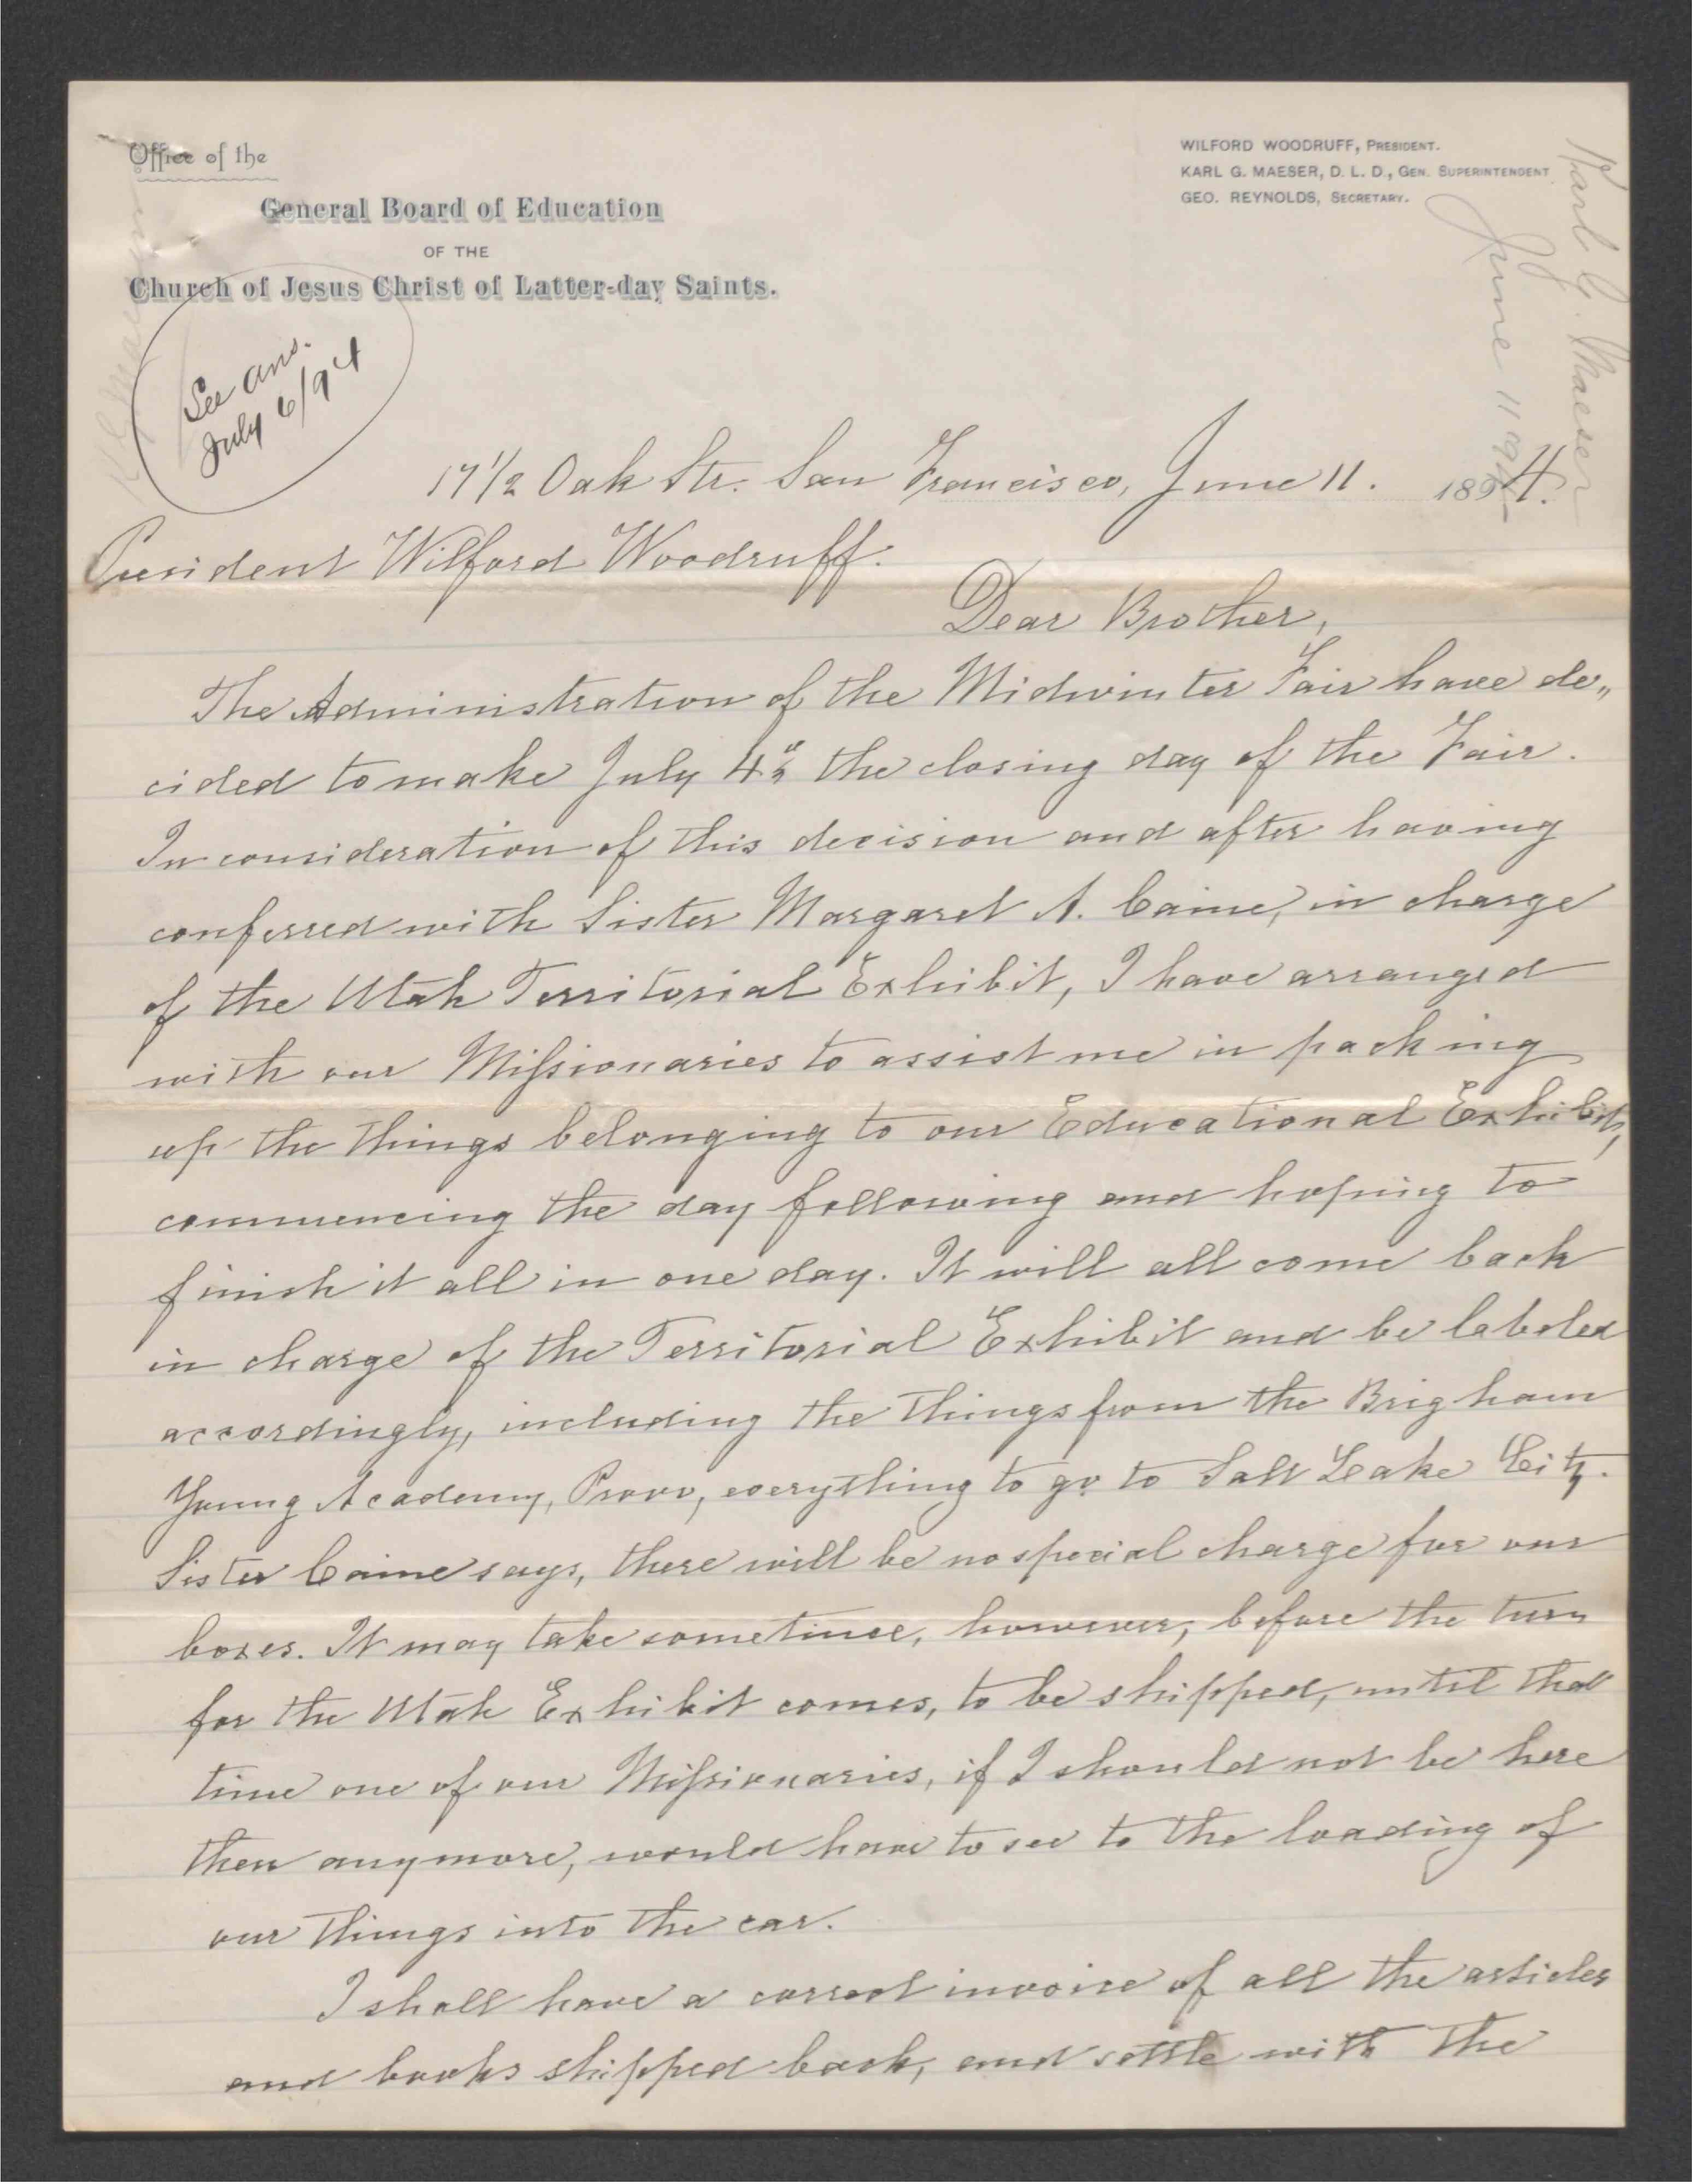 Office of the
General Board of Education
OF THE
Church of Jesus Christ of Latter-day Saints.
WILFORD WOODRUFF, PRESIDENT.
KARL G. MAESER, D. L. D., GEN. SUPERINTENDENT
GEO. REYNOLDS, SECRETARY.
Karl G. Maeser
June 11 94
See ans.
July 6/94
17 1/2 Oak Str. San Francisco, June 11. 1894.
President Wilford Woodruff.
Dear Brother,
The Administration of the Midwinter Fair have de„
cided to make July 4th the closing day of the Fair.
In consideration of this decision and after having
conferred with Sister Margaret A. Caine, in charge
of the Utah Territorial Exhibit, I have arranged
with our Missionaries to assist me in packing
up the things belonging to our Educational Exhibit,
commencing the day following and hoping to
finish it all in one day. It will all come back
in charge of the Territorial Exhibit and be labeled
accordingly, including the things from the Brigham
Young Academy, Provo, everything to go to Salt Lake City.
Sister Caine says, there will be no special charge for our
boxes. It may take sometime, however, before the turn
for the Utah Exhibit comes, to be shipped, until that
time one of our Missionaries, if I should not be here
then anymore, would have to see to the loading of
our things into the car.
I shall have a correct invoice of all the articles
and books shipped back, and settle with the